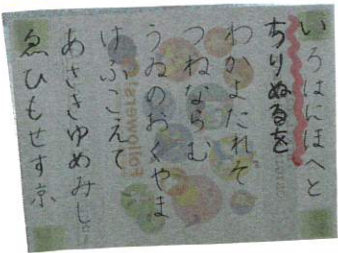 いろはにほへと
ちりぬるを
わかよたれそ
つねならむ
うゐのおくやま
けふこえて
あさきゆめみし
ゑひもせす京
Followers